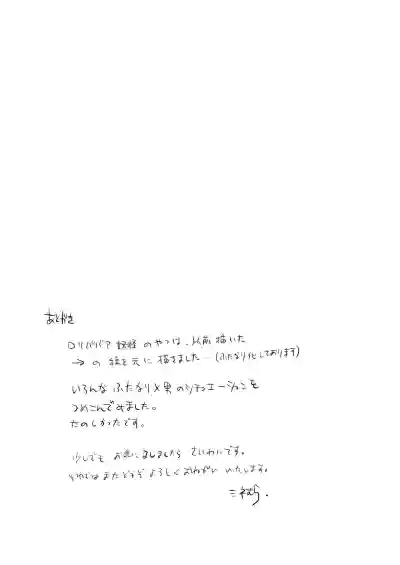 あとがき
ロリババア妖怪のやつは、以前描いた
→の絵を元に描きました…(ふたなり化しております)
いろんなふたなり×男のシチュエーションを
つめこんでみました。
たのしかったです。
少しでもお気に召しましたらさいわいです。
それではまたどうぞよろしくおねがいいたします。